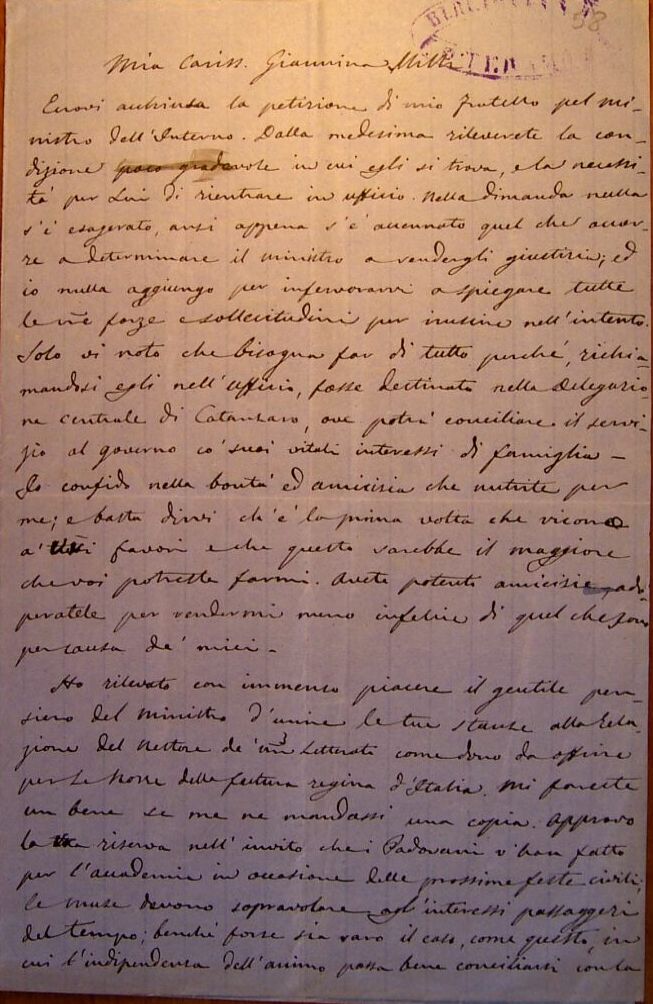 58
BIBLIOTECA
TERAMO
Mia Cariss. Giannina Milli
Eccovi acchiusa la petizione di mio fratello pel mi-
nistro dell'Interno. Dalla medesima rileverete la con-
dizione poco gradevole in cui egli si trova, e la necessi-
tà per Lui di rientrare in ufficio. Nella dimanda nulla
s'è esagerato, anzi appena s'è accennato quel che accor-
re a determinare il ministro a rendergli giustizia; ed
io nulla aggiungo per infervorarvi a spiegare tutte
le vre forze e sollecitudini per riuscire nell'intento.
Solo vi noto che bisogna far di tutto perché, richia-
mandosi egli nell'ufficio, fosse destinato nella Delegazio-
ne centrale di Catanzaro, ove potrà conciliare il servi-
zio al governo co' suoi vitali interessi di famiglia –
Io confido nella bontà ed amicizia che nutrite per
me; e basta dirvi ch'è la prima volta che ricorro
a' favori e che questo sarebbe il maggiore
che voi potreste farmi. Avete potenti amicizie, ado-
peratele per rendermi meno infelice di quel che sono
per causa de' miei –
Ho rilevato con immenso piacere il gentile pen-
siero del ministro d'unire le tue stanze alla Rela-
zione del Rettore de' Letterati come dono da offrire
per le Nozze della futura regina d'Italia. Mi fareste
un bene se me ne mandassi una copia. Approvo
la riserva nell'invito che i Padovani v'han fatto
per l'accademia in occasione delle prossime feste civili;
le muse devono sopravolare agl'interessi passaggeri
del tempo; benché forse sia raro il caso, come questo, in
cui l'indipendenza dell'animo possa bene conciliarsi con la